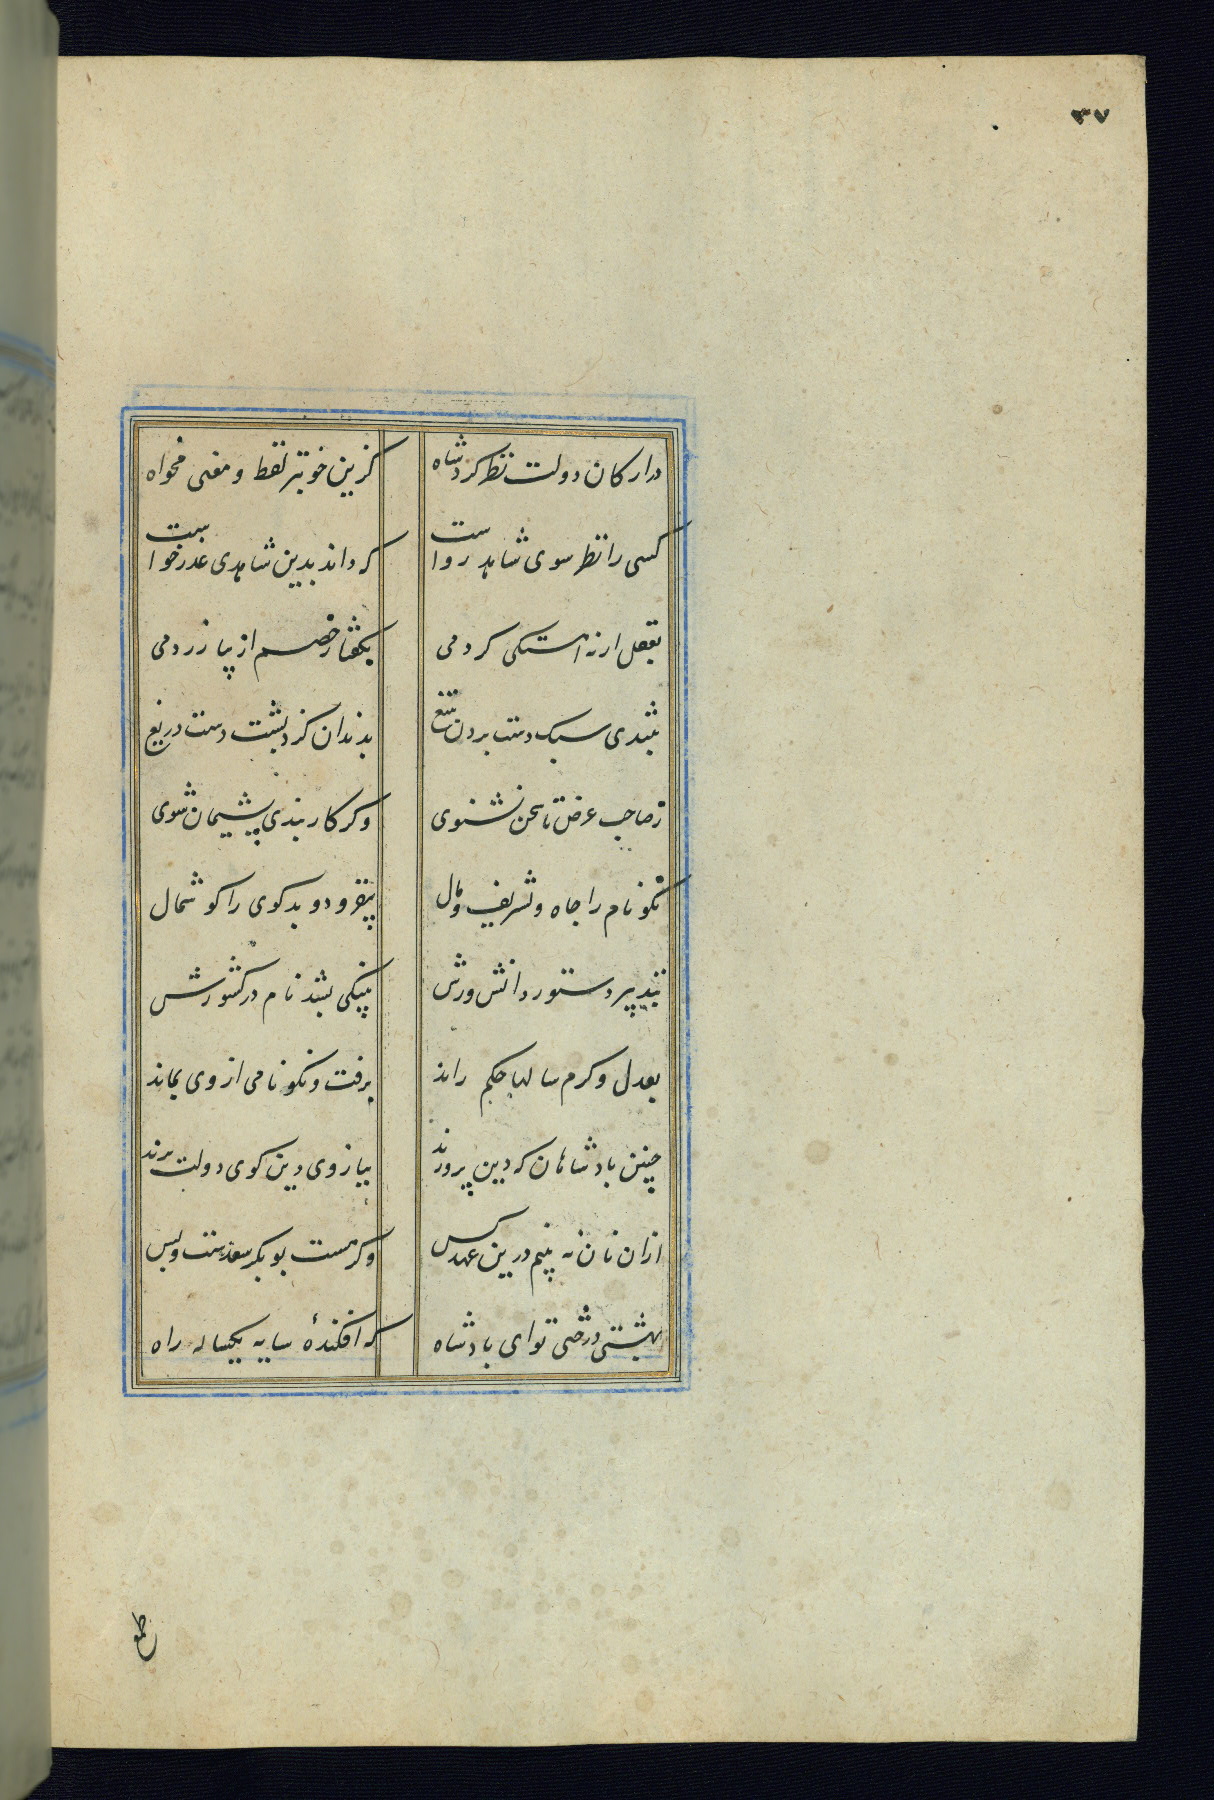 ۳۷
در ارکان دولت نظر کرد شاه کزین خوبتر لفظ و معنی مخواه
کسی را نظر سوی شاهد رواست که داند بدین شاهدی عذر خواست
بعقل ار نه آهستکی کردمی بکفتار خصم از پیازردمی
بتندی سبک دست بردن بتیغ بدندان کزد پشت دست دریغ
ز صاحب غرض تا سخن نشنوی و کر کار بندی پشیمان شوی
نکو نام را جاه و تشریف و مال بیفزود و بدکوی را کوشمال
بتدبیر دستور دانش ورش بنیکی بشد نام در کشورش
بعدل و کرم سالها حکم راند برفت و نکو نامی از وی بماند
چنین بادشاهان که دین پرورند ببازوی دین کوی دولت برند
ازان نان نه بینم درین عهد کس و کر هست بوبکر سعدست و بس
بهشتی درختی تو ای بادشاه که افکندهٔ سایه یکساله راه
طمع